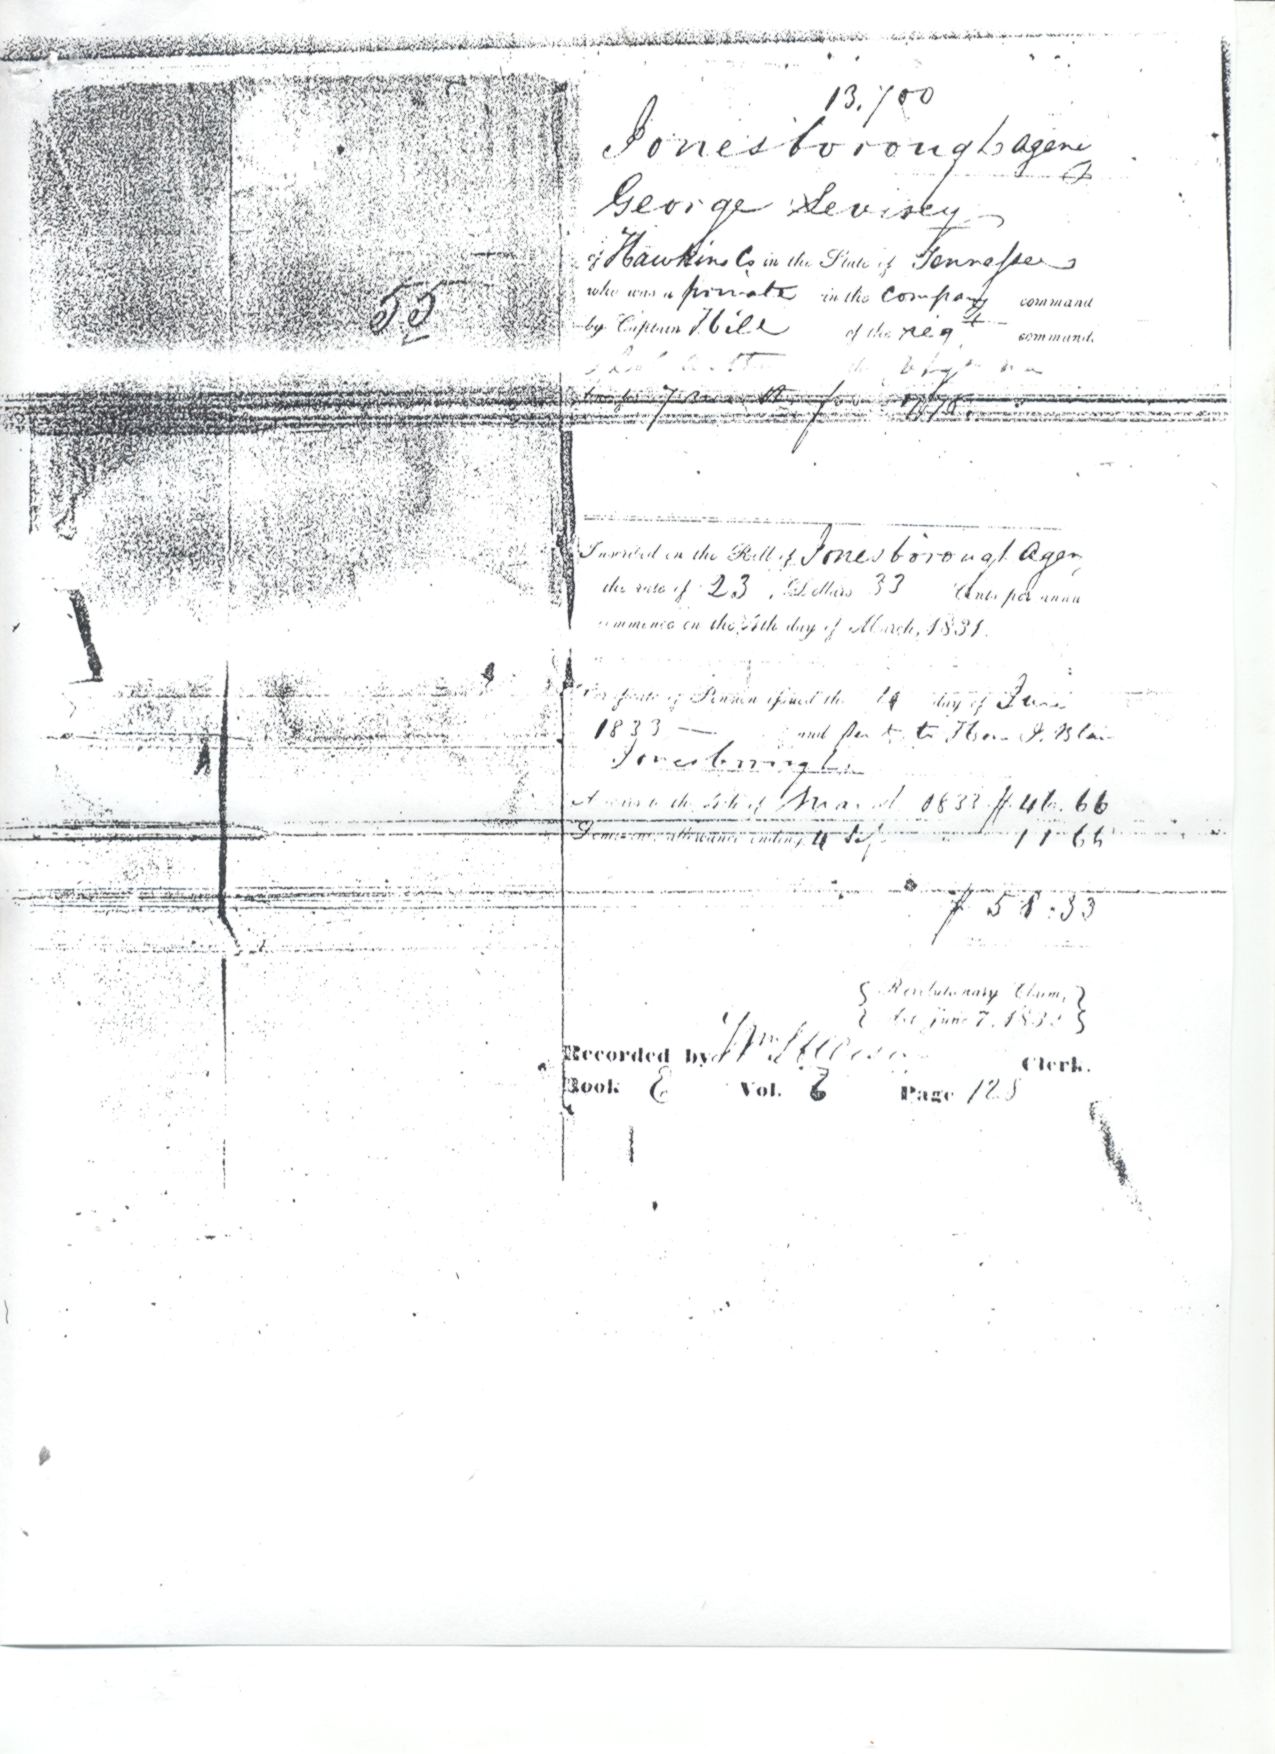 13.700
Jonesborough Agenc
George Levisey
of Hawkins Co in the State of Tennessee
who was a private in the company command
by Captain Hill of the regt command.
for
55
Inserted on the Roll of Jonesborough Agen
the rate of 23 Dollars 33 Cents per annu
commence on the 4th day of March, 1831.
of Pension issued the day of June
1833 — and sent to Hon J. Blai
Jonesborough
to the 4th of March 1833 $46.66
allowance ending 4 Sep 11 66
$ 58.33
{ Revolutionary Claim, }
{ Act June 7, 1832 }
Recorded by Clerk.
Book E Vol. Page 128